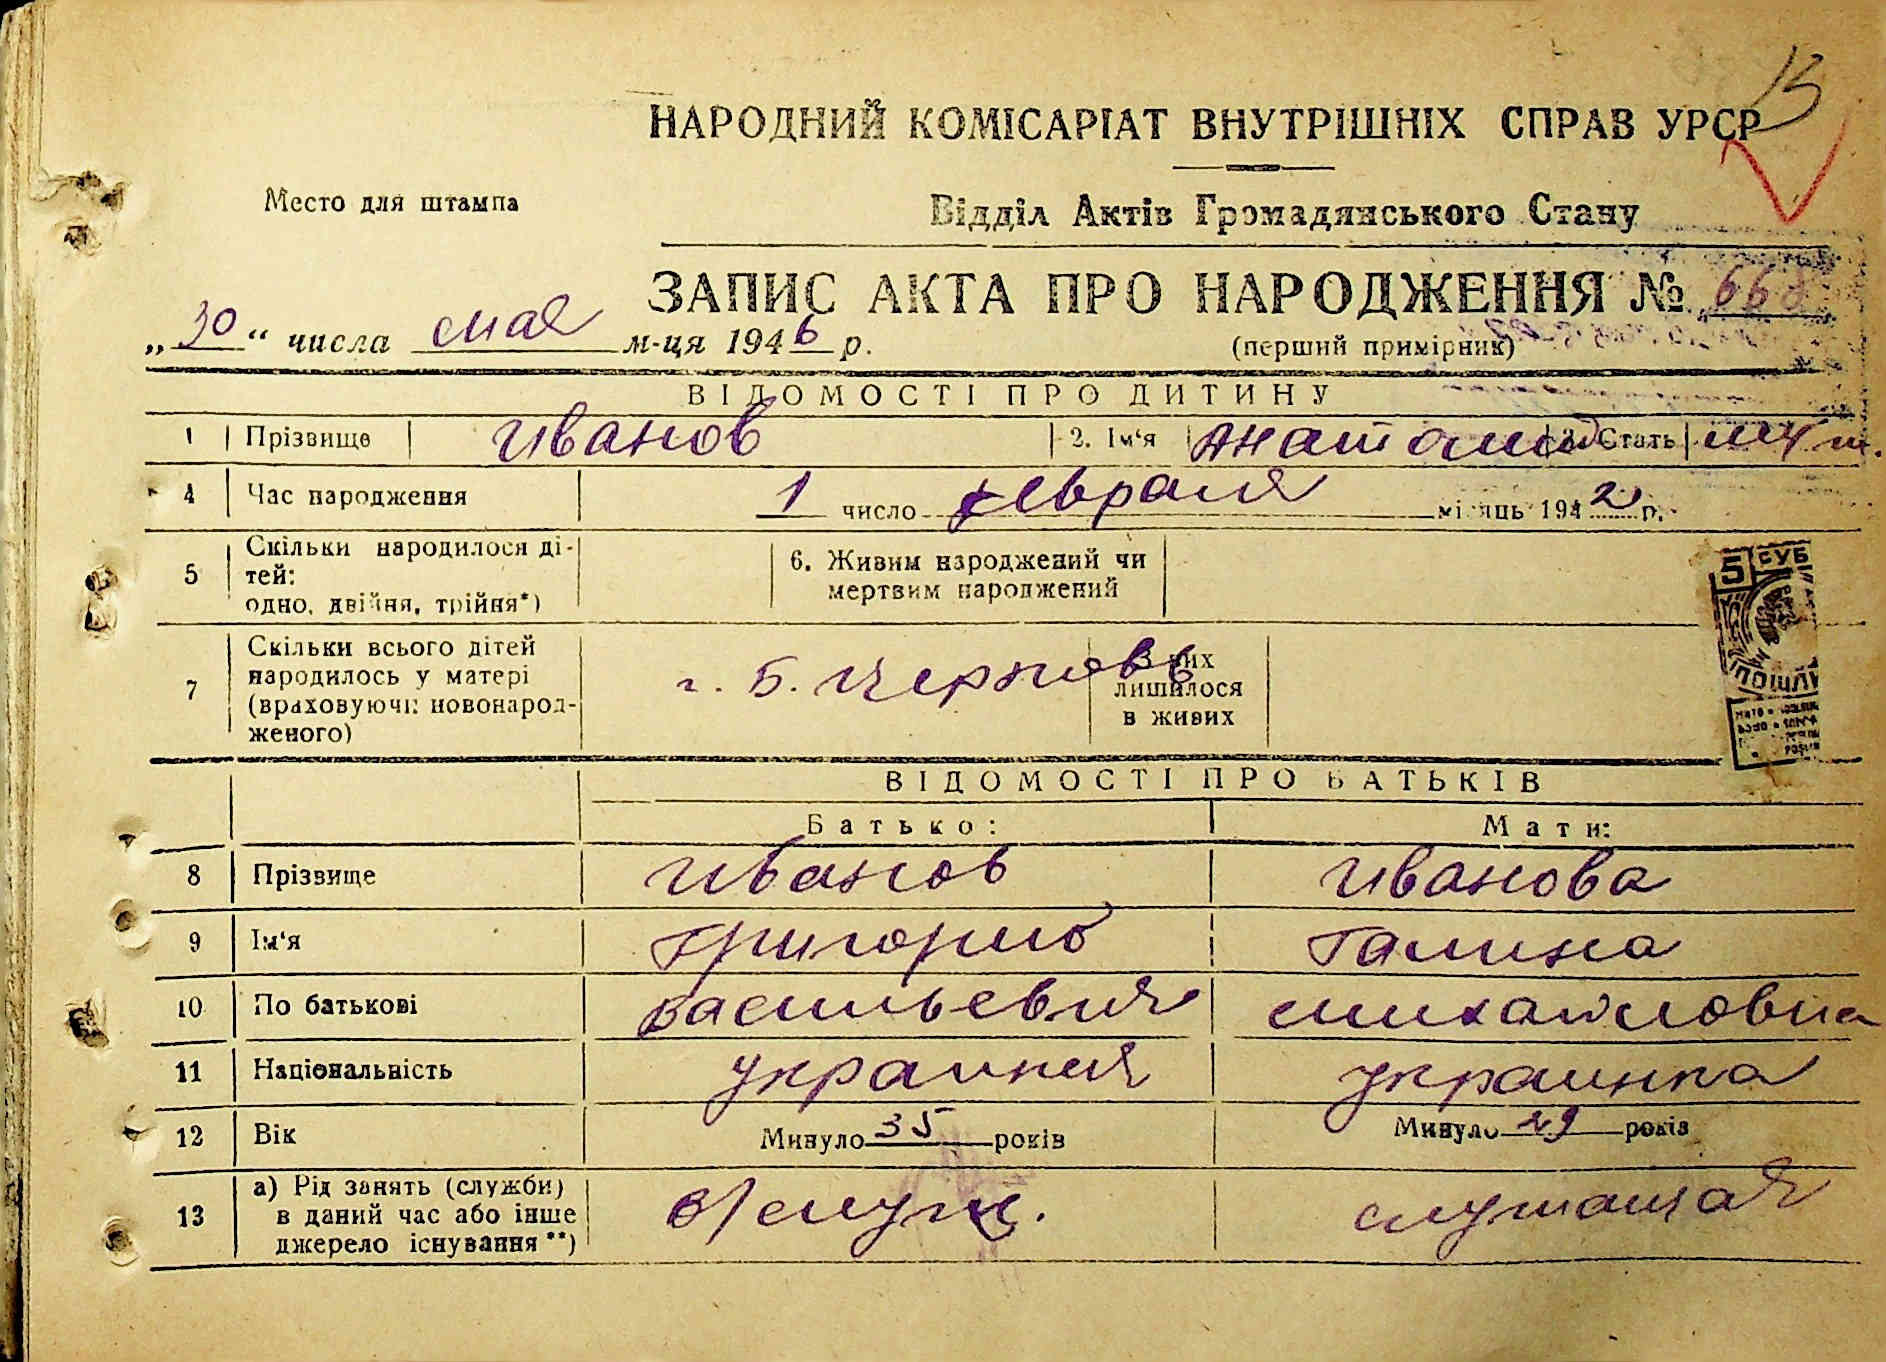 13
НАРОДНИЙ КОМІСАРІАТ ВНУТРІШНІХ СПРАВ УРСР
Место для штампа
Відділ Актів Громадянського Стану
ЗАПИС АКТА ПРО НАРОДЖЕННЯ № 668
„30“ числа мая м-ця 1946 р.
(перший примірник)
ВІДОМОСТІ ПРО ДИТИНУ
1 Прізвище Иванов 2. Ім‘я Анатолий 3. Стать муж.
4 Час народження 1 число февраля місяць 1942 р.
5 Скільки народилося ді-
тей:
одно, двійня, трійня*)
6. Живим народжений чи
мертвим народжений
5 РУБ
7 Скільки всього дітей
народилось у матері
(враховуючи новонарод-
женого)
г. Б. Церковь
З них
лишилося
в живих
ПОШЛИ
ВІДОМОСТІ ПРО БАТЬКІВ
Батько: Мати:
8 Прізвище Иванов Иванова
9 Ім‘я Григорий Галина
10 По батькові Васильевич Михайловна
11 Національність украинец украинка
12 Вік Минуло 35 років Минуло 29 років
13 а) Рід занять (служби)
в даний час або інше
джерело існування **)
в/служ. служащая